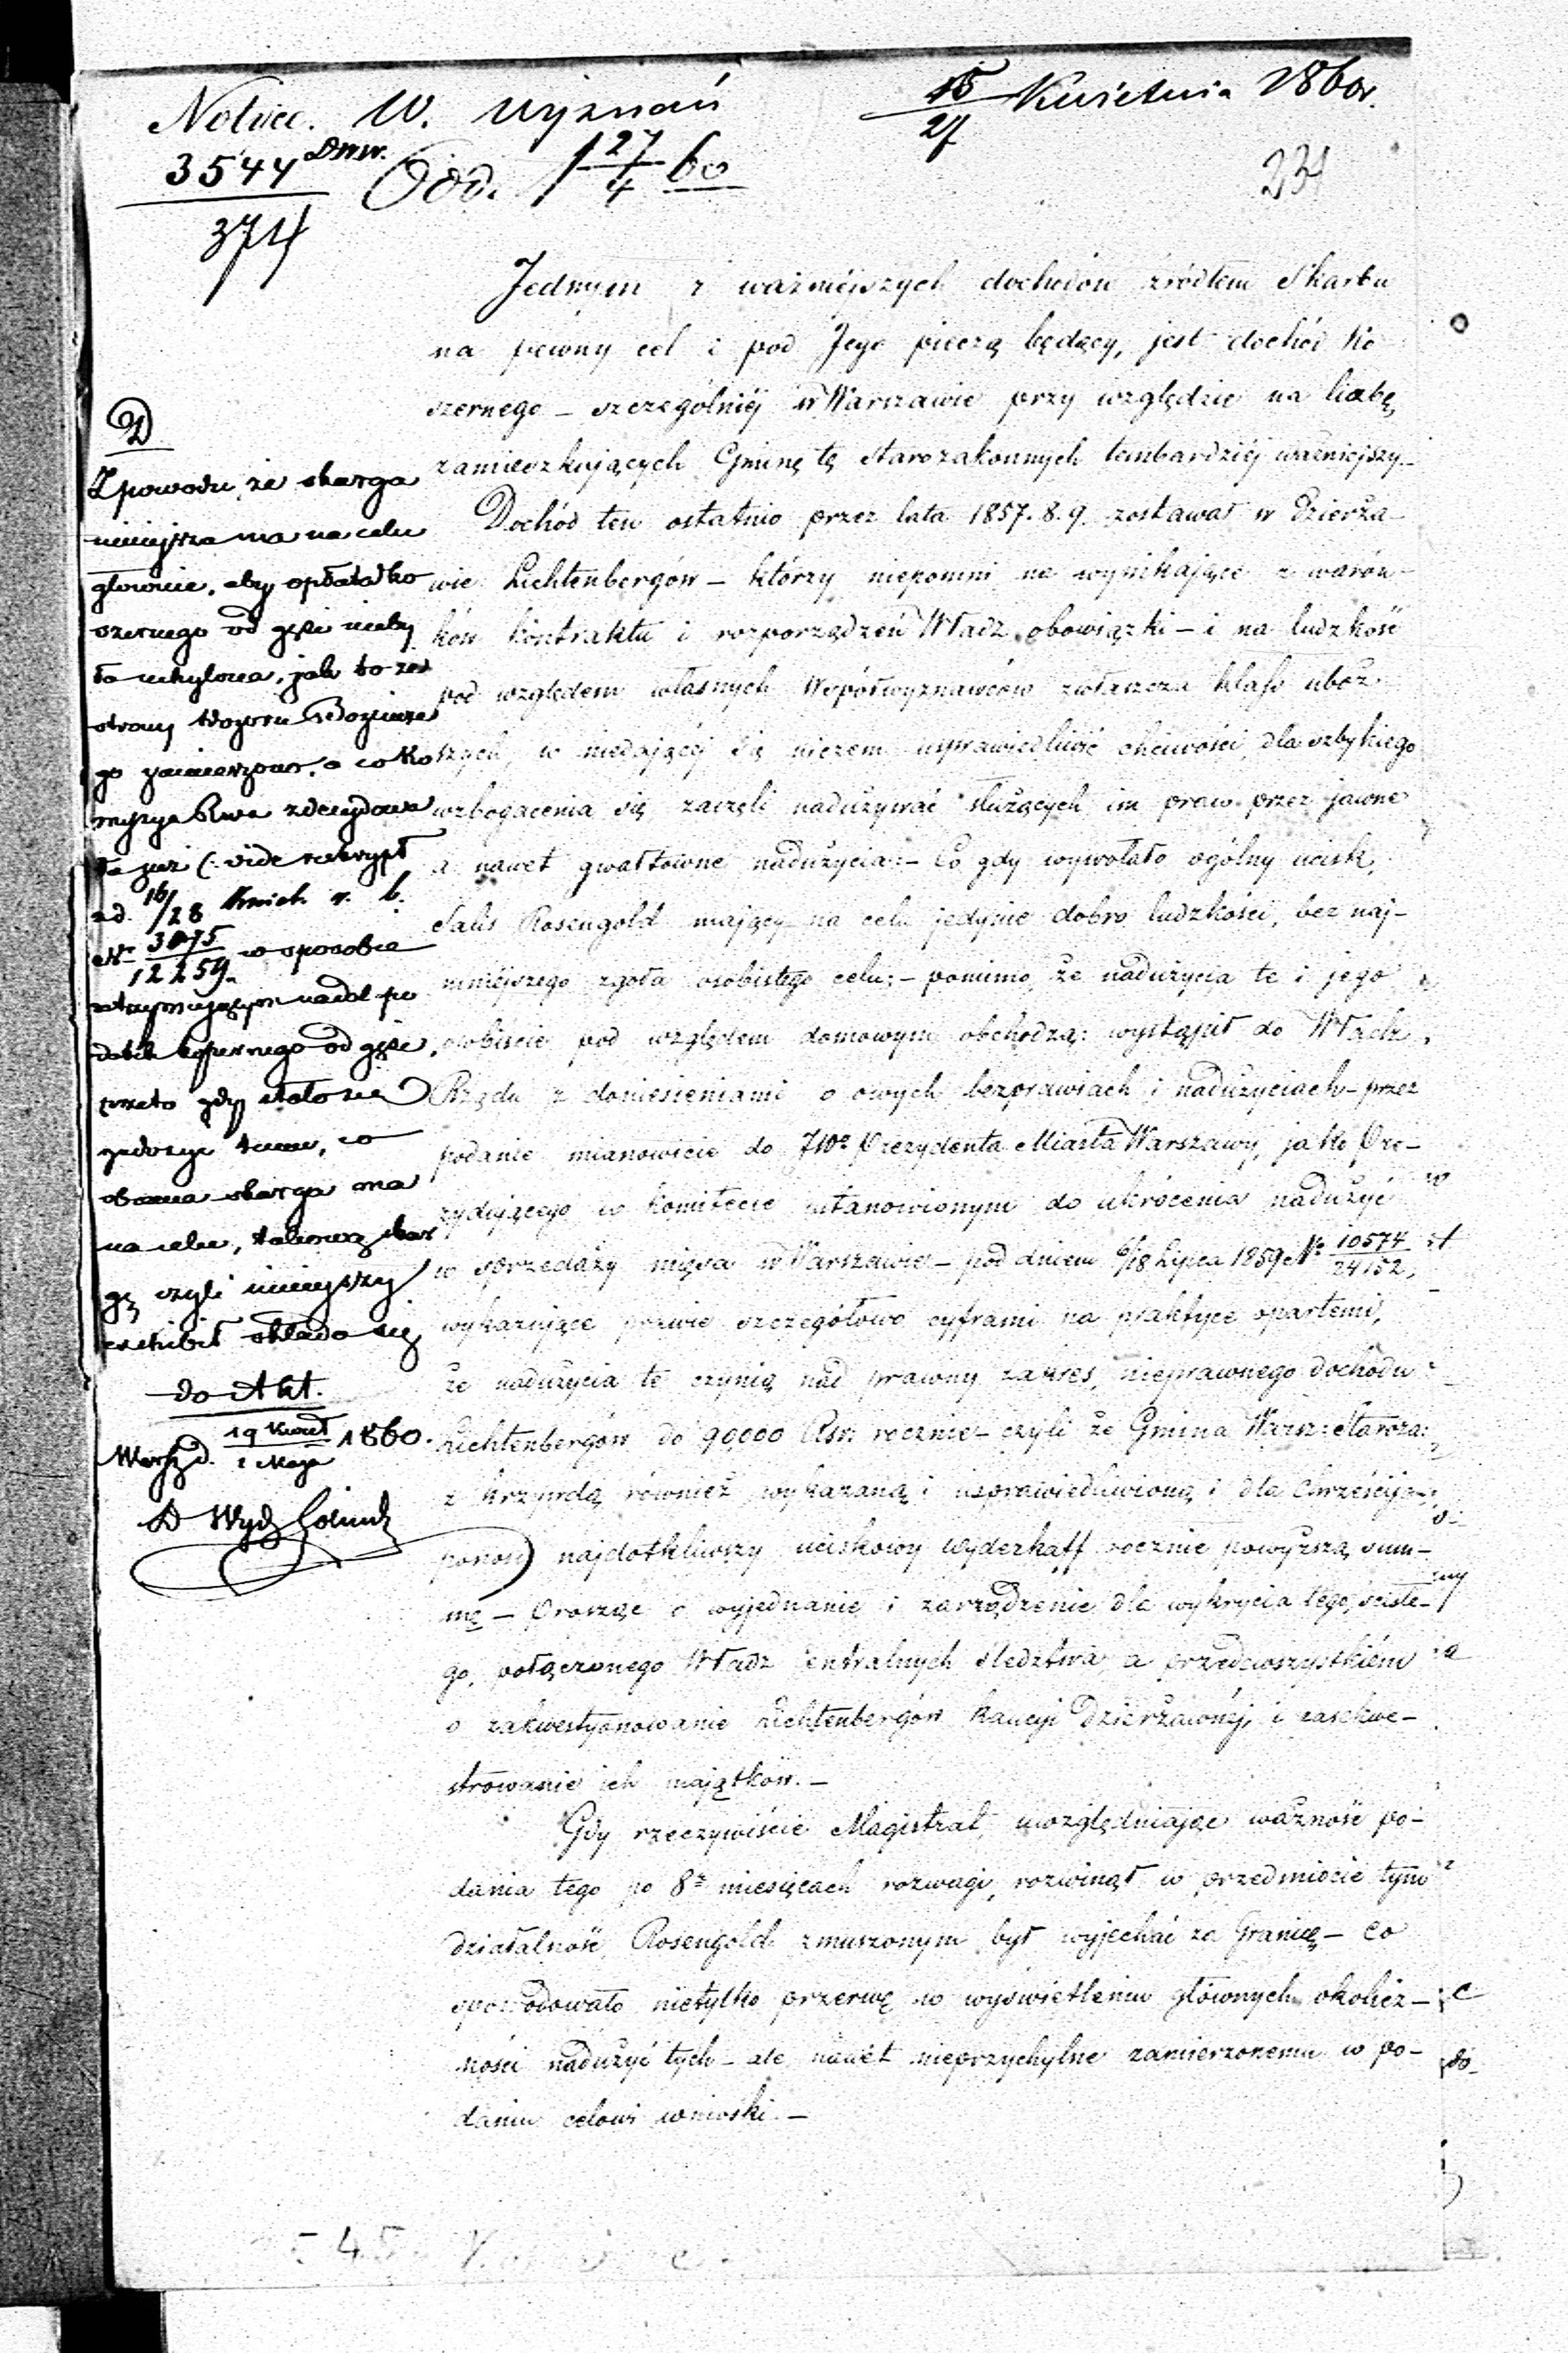 Notice. W. Wyznań
15/27 Kwietnia 1860r.
3544 Dnw.
374
Odd. 1 27/4 60
234
Jednym z ważniejszych dochodów źródłem Skarbu
na pewny cel i pod Jego pieczą będący, jest dochód Ko
szernego – szczególniéj w Warszawie przy względzie na liczbę
zamieszkujących Gminę tę Starozakonnych tembardziéj ważniejszy –
Dochód ten ostatnio przez lata 1857. 8. 9. zostawał w Dzierża–
wie Lichtenbergów – którzy niepomni na wynikające z warun–
ków kontraktu i rozporządzeń Władz obowiązki – i na ludzkość
pod względem własnych Współwyznawców zwłaszcza klass uboż
szych, w niedającéj się niczem usprawiedliwić chciwości, dla szybkiego
wzbogacenia się zaczęli nadużywać służących im praw przez jawne
a nawet gwałtowne nadużycia: – Co gdy wywołało ogólny ucisk,
Salis Rosengold mający na celu jedynie dobro ludzkości, bez naj–
mniéjszego zgoła osobistego celu; – pomimo, że nadużycia te i jego
osobiście pod względem domowym obchodzą: wystąpił do Władz
Rządu z doniesieniami o owych bezprawiach i nadużyciach – przez
podanie mianowicie do JWo Prezydenta Miasta Warszawy, jako Pre–
zydującego w Komitecie ustanowionym do ukrócenia nadużyć
w sprzedaży mięsa w Warszawie – pod dniem 6/18 Lipca 1859 No 10574/24152,
wykazujące prawie szczegółowo cyframi na praktyce opartemi,
że nadużycia te czynią nad prawny zakres, nieprawnego dochodu
Lichtenbergów do 90,000 Rsr. rocznie – czyli że Gmina Warsz: Staroza:
z krzywdą również wykazaną i usprawiedliwioną i dla Chrześcijan
ponosi najdotkliwszy uciskowy wyderkaff rocznie powyższą sum–
mę – Prosząc o wyjednanie i zarządzenie dla wykrycia tego, ściśłe–
go, połączonego Władz Centralnych śledztwa, a przedewszystkiém
o zakwestyonowanie Lichtenbergów Kaucyi Dzierżawnéj, i zasekwe–
strowanie ich majątków. –
Gdy rzeczywiście Magistrat, uwzględniając ważność po–
dania tego po 8u miesięcach rozwagi, rozwinął w przedmiocie tym
działalność Rosengold zmuszonym był wyjechać za Granicę – co
spowodowało nietylko przerwę w wyświetleniu głównych okolicz–
ności nadużyć tych – ale nawet nieprzychylne zamierzonemu w po–
daniu celowi wnioski. –
D
Z powodu, że skarga
niniejsza ma na celu
głównie, aby opłata ko
szernego od gęsi nieby
ła uchylona, jak to ze
strony Dozoru Bożnicze
go zamierzono, a co Ko
missya Rwa zdecydowa
ła już (: vide reskrypt
z d. 16/28 Kwiet. r. b.
No 3075/12259. w sposobie
utrzymującym nadal po
datek koszernego od gęsi,
przeto gdy stało się
zadosyć temu, co
obecna skarga ma
na celu, takową skar
gę czyli niniejszy
exhibit składa się
do Akt.
Warsz. d. 19 Kwiet/1 Maja 1860.
D Wydz